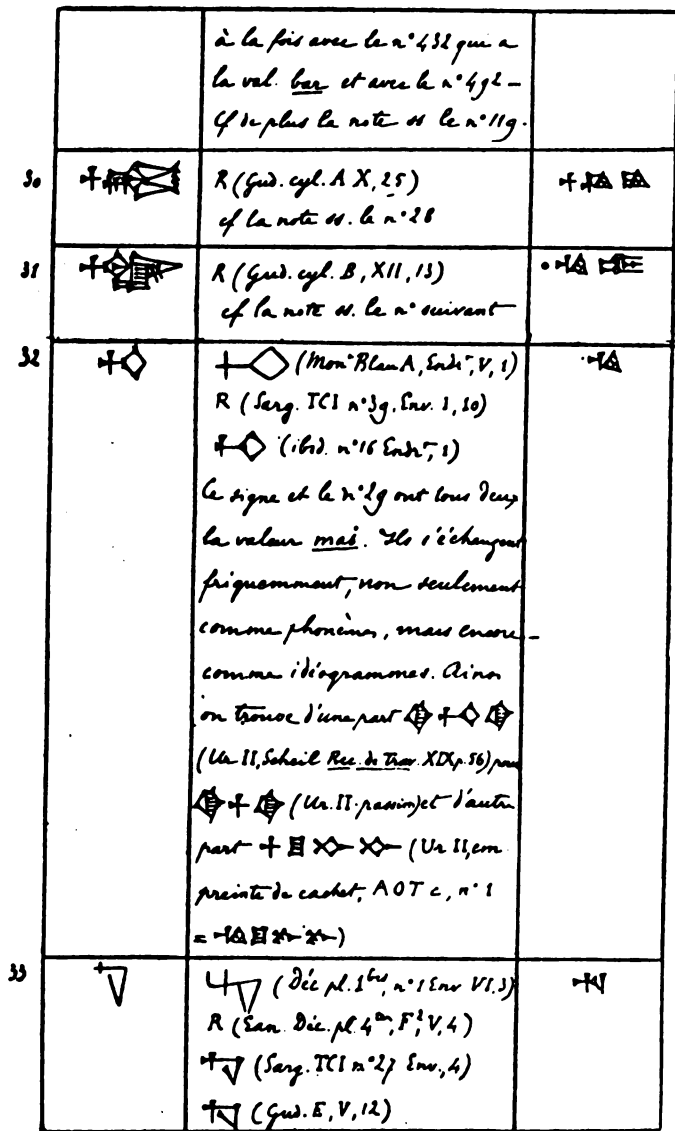 à la fois avec le n° 432 que a
la val. bar et avec le n° 492 –
cf de plus la note ss le n° 119.
30 R (Gud. cyl. A X, 25)
cf la note ss. le n° 28
31 R (Gud. cyl. B, XII, 13)
cf la note ss. le n° suivant
32 (Mont Blau A, Endrt, V, 1)
R (Sarg. TCI n° 39, Env. 1, 10)
(ibid. n° 16 Endrt, 1)
Ce signe et le n° 29 ont tous deux
la valeur maš. Ils s'échangent
fréquemment, non seulement
comme phonèmes, mais encore –
comme idéogrammes. Ainsi
on trouve d'une part
(Ur II, Scheil Rec. de Trav. XIX p. 56) pour
(Ur. II. passim) et d'autre
part (Ur II, em
preinte de cachet, AOT c, n° 1
= )
33 (Déc pl. 1 bis, n° 1 Env VI, 3)
R (Ean. Déc. pl. 4, F², V, 4)
(Sarg. TCI n° 27 Env., 4)
(Gud. E, V, 12)